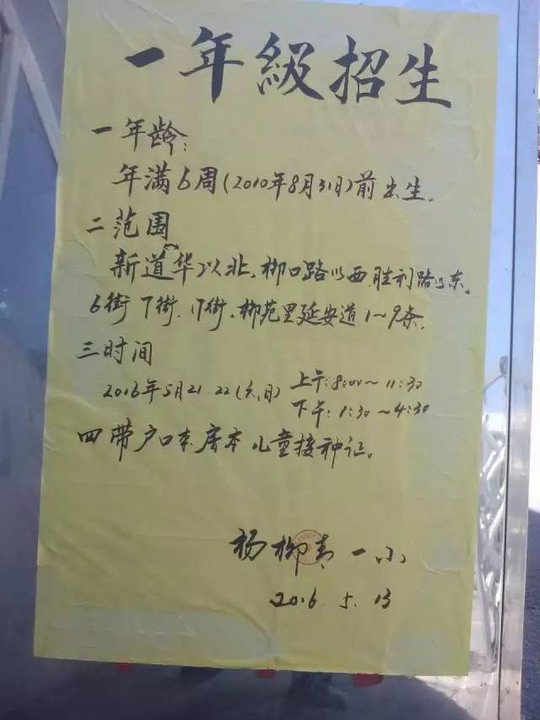 一年級招生
一年龄:
年满6周(2010年8月31日)前出生。
二范围
新道华以北,柳口路以西,胜利路以东。
6街7街.17街.柳苑里延安道1~9条.
三时间
2016年5月21.22(六.日) 上午:8:00~11:30
下午:1:30~4:30
四带户口本房本儿童接种证。
杨柳青一小
2016.5.13